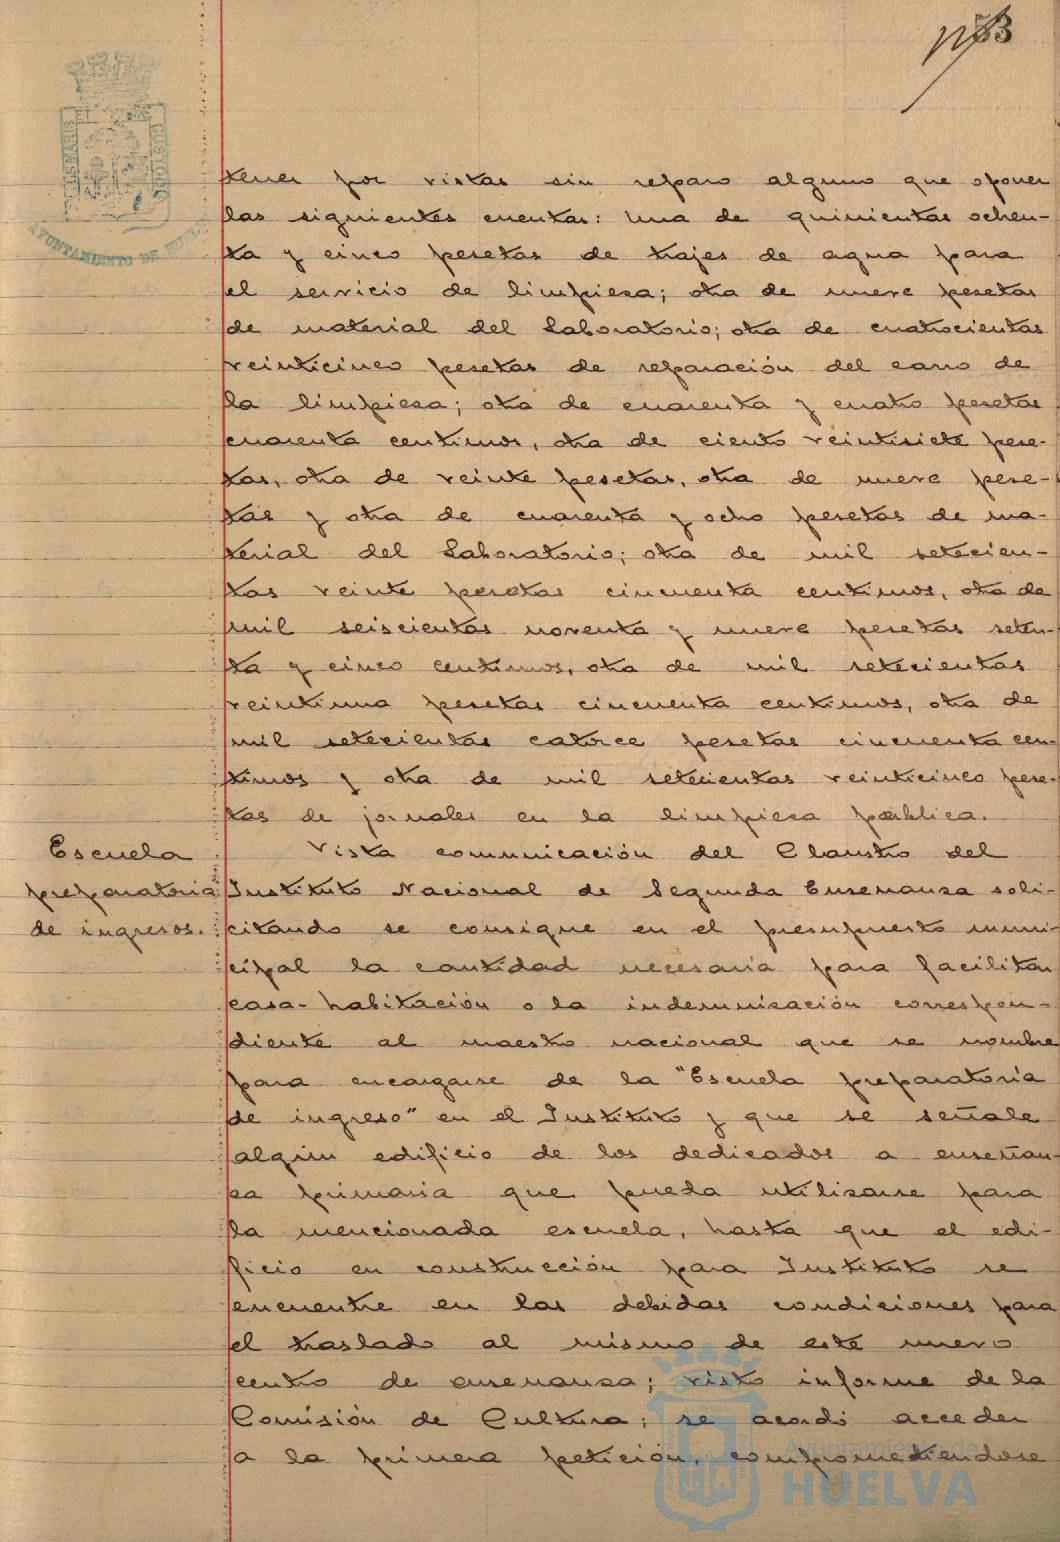 tener por vistas sin reparo alguno que oponer
las siguientes cuentas: una de quinientas ochen-
ta y cinco pesetas de trajes de agua para
el servicio de limpiesa; otra de nueve pesetas
de material del Laboratorio; otra de cuatrocientas
veinticinco pesetas de reparación del carro de
la limpiesa; otra de cuarenta y cuatro pesetas
cuarenta centimos, otra de ciento veintisiete pese-
tas, otra de veinte pesetas, otra de nueve pese-
tas y otra de cuarenta y ocho pesetas de ma-
terial del Laboratorio; otra de mil setecien-
tas veinte pesetas cincuenta centimos, otra de
mil seiscientas noventa y nueve pesetas seten-
ta y cinco centimos, otra de mil setecientas
veintiuna pesetas cincuenta centimos, otra de
mil setecientas catorce pesetas cincuenta cen-
timos y otra de mil setecientas veinticinco pese-
tas de jornales en la limpieza pública.
Escuela
preparatoria
de ingresos.
Vista comunicación del Claustro del
Instituto Nacional de Segunda Ensenansa soli-
citando se consigne en el presupuesto muni-
cipal la cantidad necesaria para facilitar
casa-habitación o la indemnisación correspon-
diente al maestro nacional que se nombre
para encargarse de la "Escuela preparatoria
de ingreso" en el Instituto y que se señale
algún edificio de los dedicados a enseñan-
za primaria que pueda utilisarse para
la mencionada escuela, hasta que el edi-
ficio en construcción para Instituto se
encuentre en las debidas condiciones para
el traslado al mismo de este nuevo
centro de ensenansa; visto informe de la
Comisión de Cultura; se acordó acceder
a la primera petición, comprometiendose
AYUNTAMIENTO DE HUELVA
Ayuntamiento de
HUELVA